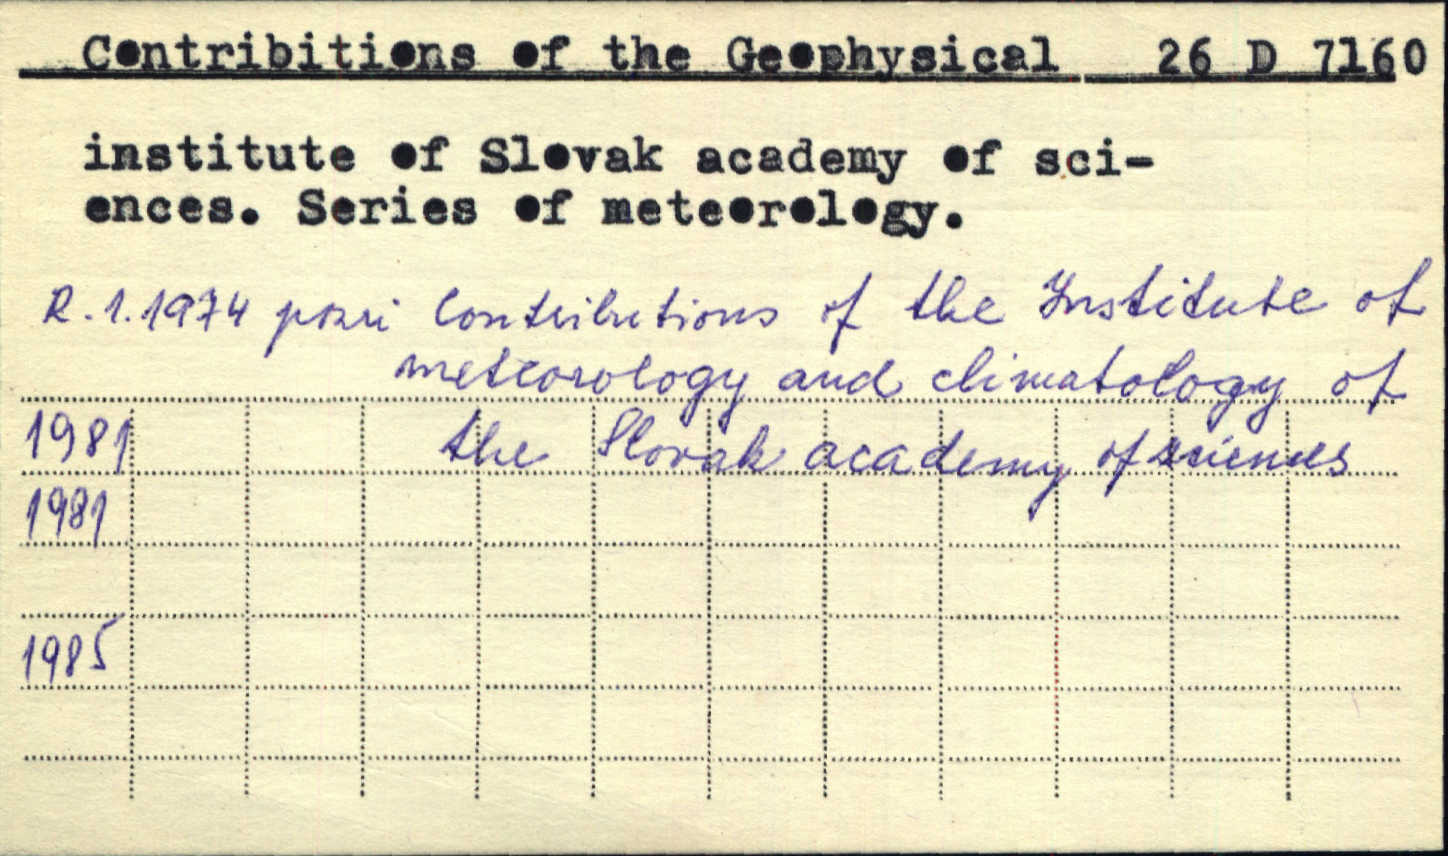 Contribitions of the Geophysical 26 D 7160
institute of Slovak academy of sci-
ences. Series of meteorology.
R. 1. 1974 pozri Contributions of the Institute of
meteorology and climatology of
the Slovak academy of sciences
1981
1981
1985